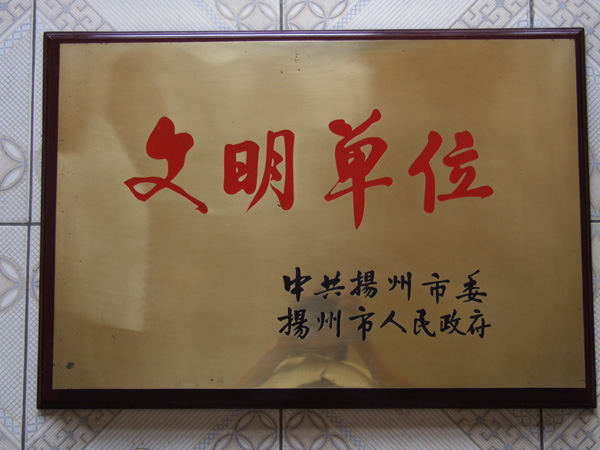 文明单位
中共揚州市委
揚州市人民政府